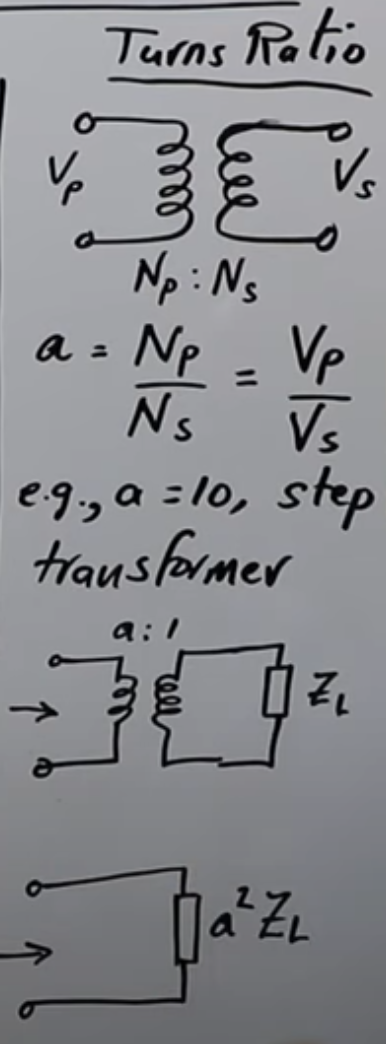 Turns Ratio
Vp Vs
Np : Ns
a = Np/Ns = Vp/Vs
e.g., a = 10, step
transformer
a : 1
ZL
a²ZL